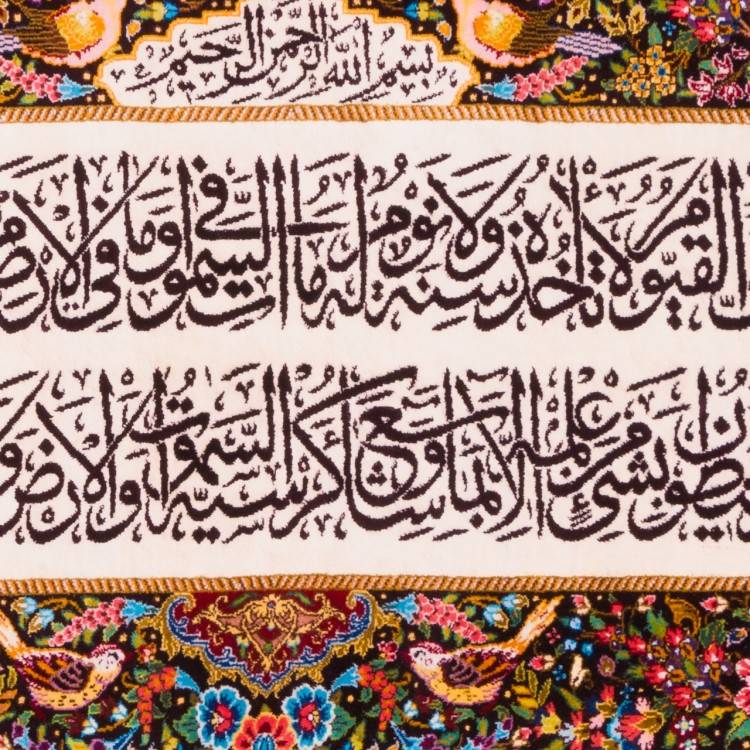 بسم الله الرحمن الرحيم
القيوم لا تأخذه سنة ولا نوم له ما في السموات وما في الأرض
يحيطون بشيء من علمه إلا بما شاء وسع كرسيه السموات والأرض و